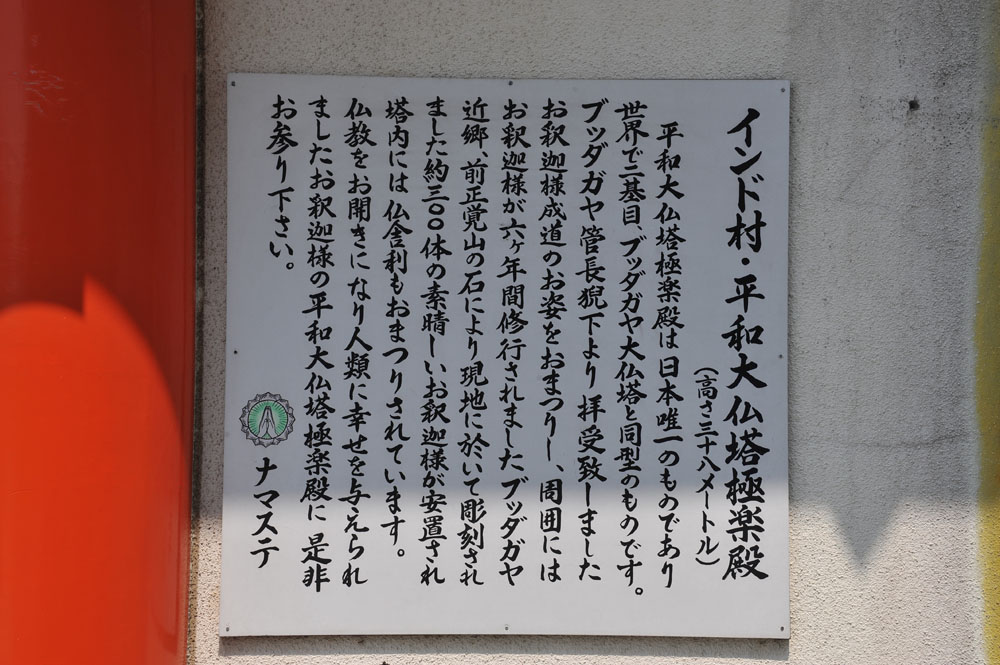 インド村・平和大仏塔極楽殿
（高さ三十八メートル）
平和大仏塔極楽殿は日本唯一のものであり
世界で三基目、ブッダガヤ大仏塔と同型のものです。
ブッダガヤ管長猊下より拝受致しました
お釈迦様成道のお姿をおまつりし、周囲には
お釈迦様が六ヶ年間修行されましたブッダガヤ
近郷、前正覚山の石により現地に於いて彫刻され
ました約三〇〇体の素晴しいお釈迦様が安置され
塔内には仏舎利もおまつりされています。
仏教をお開きになり人類に幸せを与えられ
ましたお釈迦様の平和大仏塔極楽殿に是非
お参り下さい。
ナマステ